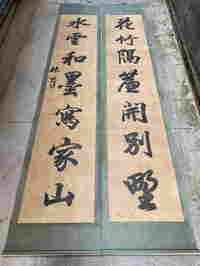 花竹隔簾開別墅
水雲和墨寫家山